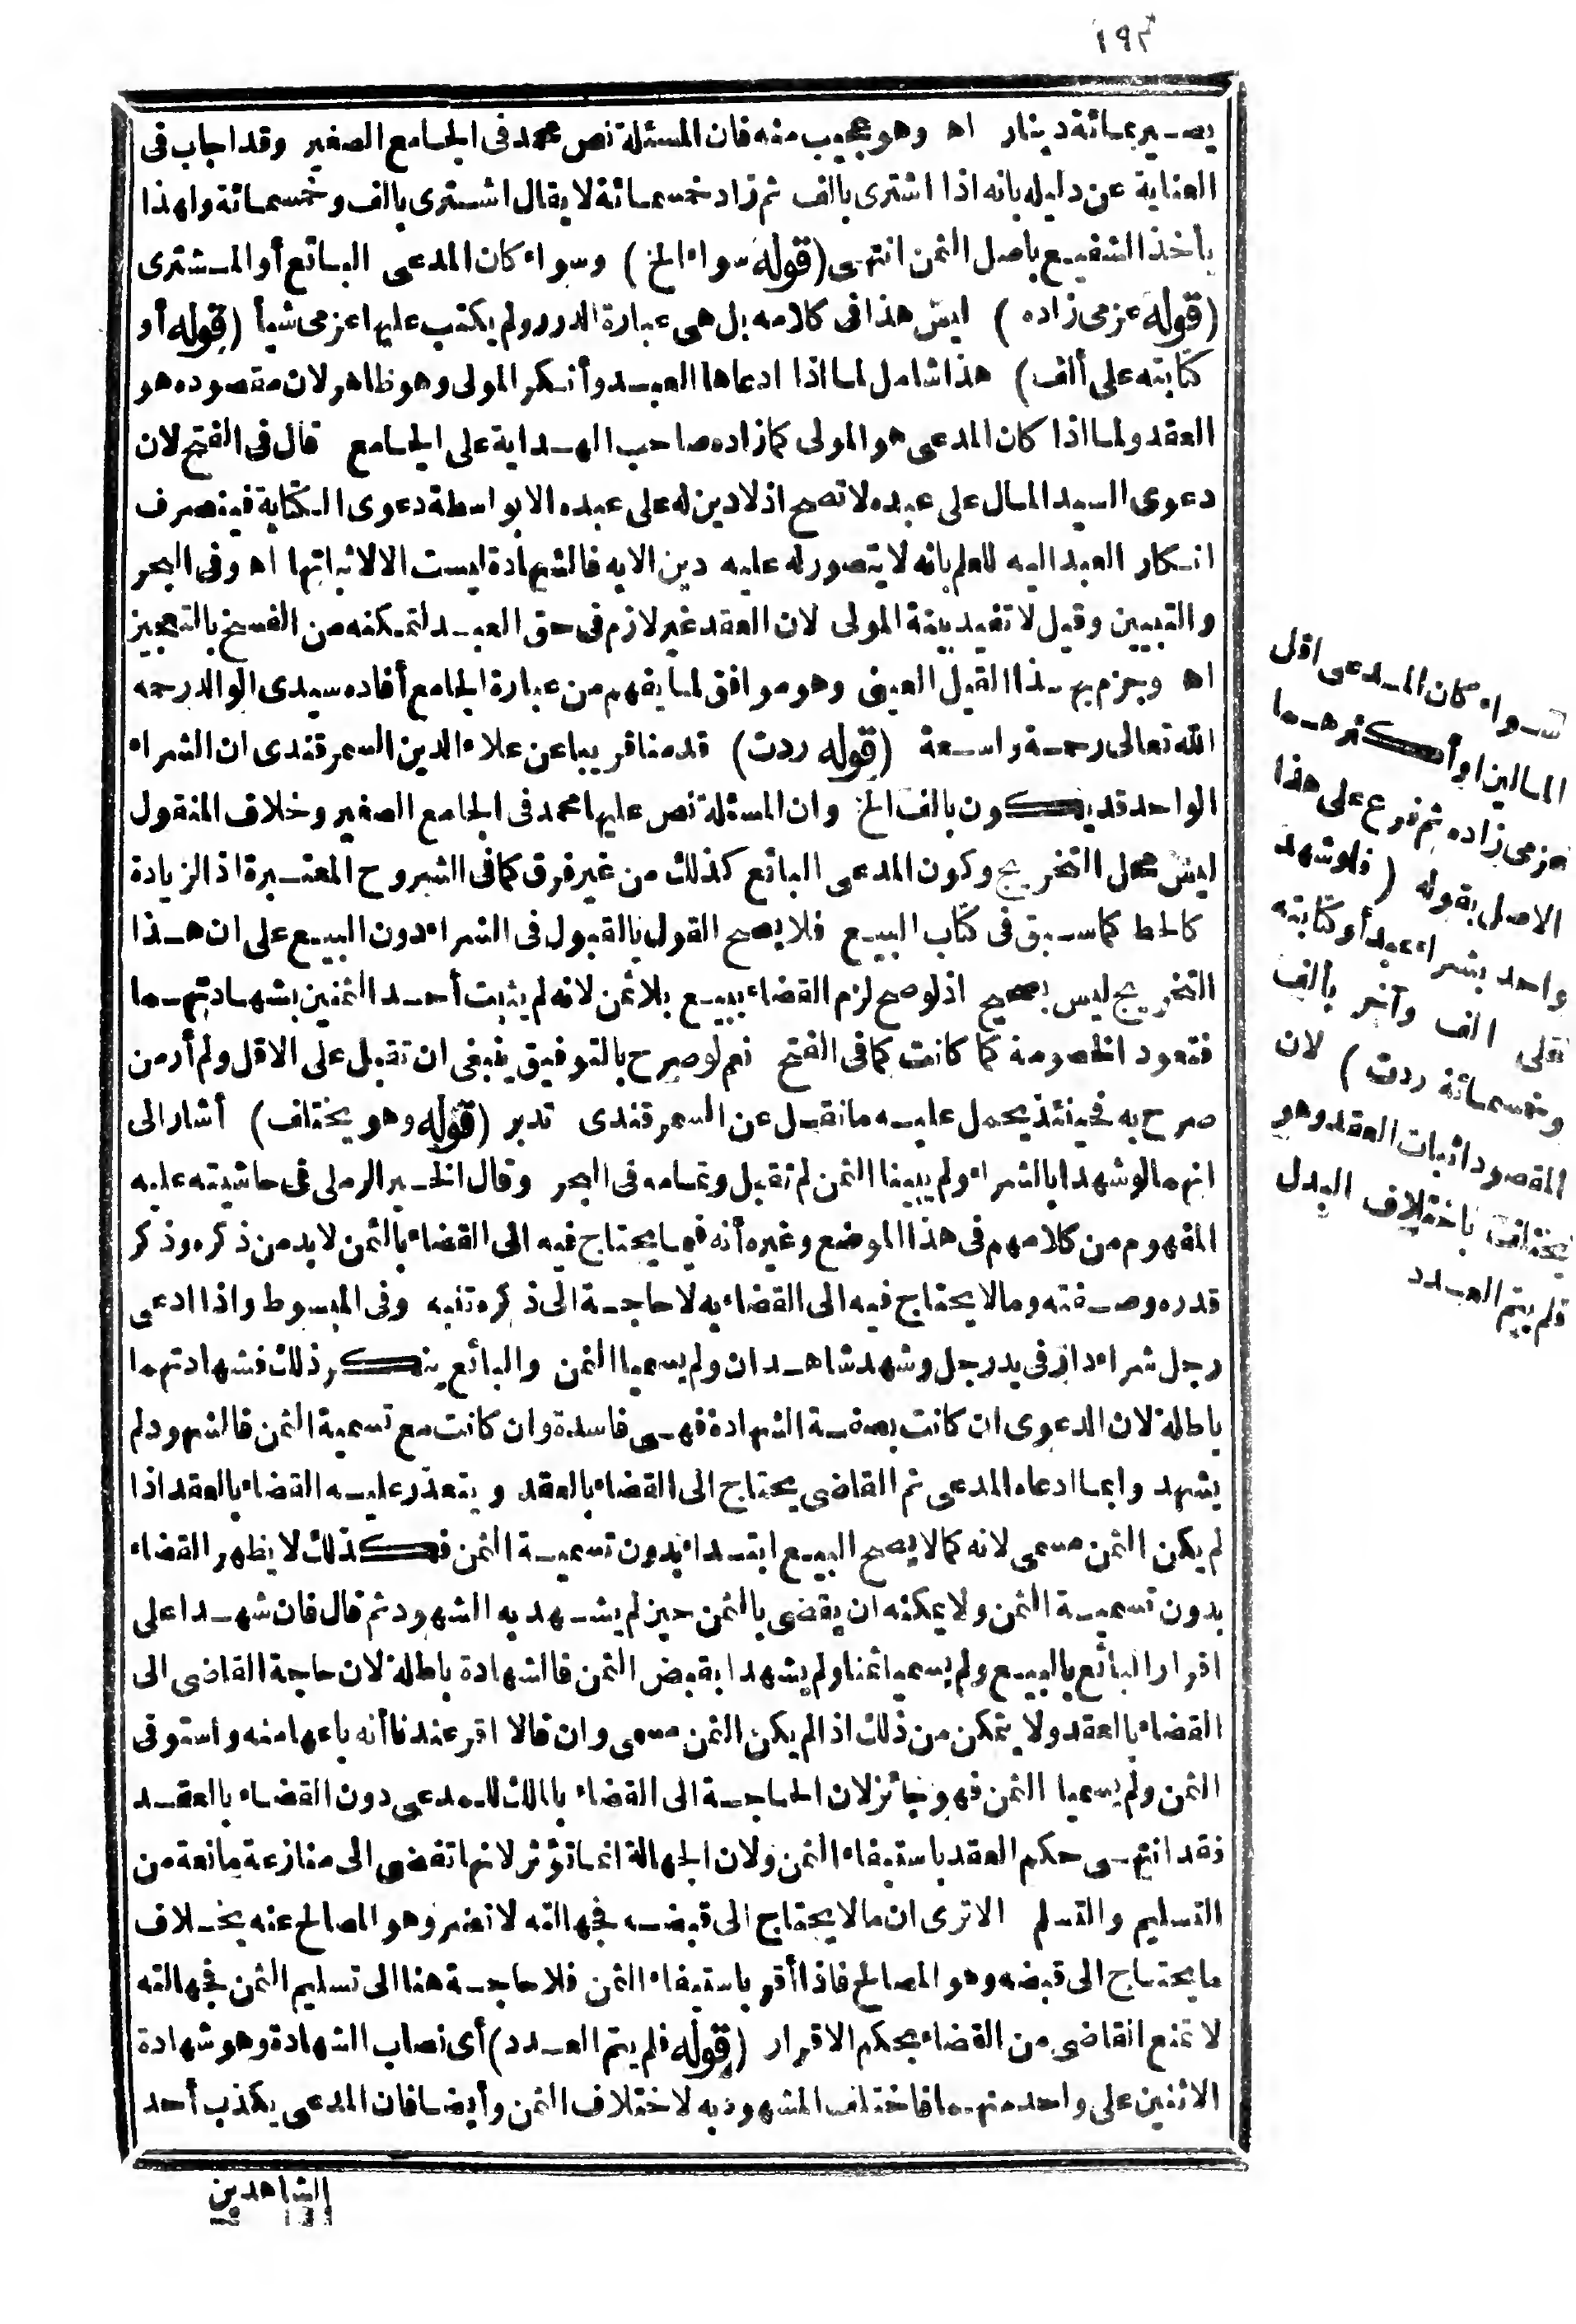 ١٩٣
يصير بمائة دينار اه وهو عجيب منه فان المسئلة نص محمد فى الجامع الصغير وقد اجاب فى
العناية عن دليله بانه اذا اشترى بالف ثم زاد خمسمائة لا يقال اشترى بالف وخمسمائة ولهذا
يأخذ الشفيع باصل الثمن انتهى (قوله سواء الخ) وسواء كان المدعى البائع أو المشترى
(قوله عزمى زاده) ليس هذا فى كلامه بل هى عبارة الدرر ولم يكتب عليها عزمى شيأ (قوله أو
كتابته على ألف) هذا شامل لما اذا ادعاها العبد وأنكر المولى وهو ظاهر لان مقصوده هو
العقد ولما اذا كان المدعى هو المولى كما زاده صاحب الهداية على الجامع قال فى الفتح لان
دعوى السيد المال على عبده لا تصح اذ لا دين له على عبده الا بواسطة دعوى الكتابة فينصرف
انكار العبد اليه للعلم بانه لا يتصور له عليه دين الا به فالشهادة ليست الا لاثباتها اه وفى البحر
والتبيين وقيل لا تفيد بينة المولى لان العقد غير لازم فى حق العبد لتمكنه من الفسخ بالتعجيز
اه وجزم بهذا القيل العينى وهو موافق لما يفهم من عبارة الجامع أفاده سيدى الوالد رحمه
الله تعالى رحمة واسعة (قوله ردت) قدمنا قريبا عن علاء الدين السمرقندى ان الشراء
الواحد قد يكون بالف الخ وان المسئلة نص عليها محمد فى الجامع الصغير وخلاف المنقول
ليس محل التخريج وكون المدعى البائع كذلك من غير فرق كما فى الشروح المعتبرة اذ الزيادة
كالحط كما سبق فى كتاب البيع فلا يصح القول بالقبول فى الشراء دون البيع على ان هذا
التخريج ليس بصحيح اذ لو صح لزم القضاء ببيع بلا ثمن لانه لم يثبت أحد الثمنين بشهادتهما
فتعود الخصومة كما كانت كما فى الفتح نعم لو صرح بالتوفيق ينبغى ان تقبل على الاقل ولم أر من
صرح به فحينئذ يحمل عليه ما نقل عن السمرقندى تدبر (قوله وهو يختلف) أشار الى
انهما لو شهدا بالشراء ولم يبينا الثمن لم تقبل وتمامه فى البحر وقال الخير الرملى فى حاشيته عليه
المفهوم من كلامهم فى هذا الموضع وغيره أنه فيما يحتاج فيه الى القضاء بالثمن لا بد من ذكره وذكر
قدره وصفته وما لا يحتاج فيه الى القضاء به لا حاجة الى ذكره تنبه وفى المبسوط واذا ادعى
رجل شراء دار فى يد رجل وشهد شاهدان ولم يسميا الثمن والبائع ينكر ذلك فشهادتهما
باطلة لان الدعوى ان كانت بصفة الشهادة فهى فاسدة وان كانت مع تسمية الثمن فالشهود لم
يشهدوا بما ادعاه المدعى ثم القاضى يحتاج الى القضاء بالعقد ويتعذر عليه القضاء بالعقد اذا
لم يكن الثمن مسمى لانه كما لا يصح البيع ابتداء بدون تسمية الثمن فكذلك لا يظهر القضاء
بدون تسمية الثمن ولا يمكنه ان يقضى بالثمن حين لم يشهد به الشهود ثم قال فان شهدا على
اقرار البائع بالبيع ولم يسميا ثمنا ولم يشهدا بقبض الثمن فالشهادة باطلة لان حاجة القاضى الى
القضاء بالعقد ولا يتمكن من ذلك اذا لم يكن الثمن مسمى وان قالا اقر عندنا أنه باعها منه واستوفى
الثمن ولم يسميا الثمن فهو جائز لان الحاجة الى القضاء بالملك للمدعى دون القضاء بالعقد
فقد انتهى حكم العقد باستيفاء الثمن ولان الجهالة انما تؤثر لانها تفضى الى منازعة مانعة من
التسليم والتسلم الا ترى ان ما لا يحتاج الى قبضه فجهالته لا تضر وهو المصالح عنه بخلاف
ما يحتاج الى قبضه وهو المصالح فاذا أقر باستيفاء الثمن فلا حاجة هنا الى تسليم الثمن فجهالته
لا تمنع القاضى من القضاء بحكم الاقرار (قوله فلم يتم العدد) أى نصاب الشهادة وهو شهادة
الاثنين على واحد منهما فاختلف المشهود به لاختلاف الثمن وأيضا فان المدعى يكذب أحد
الشاهدين
سواء كان المدعى اقل
المالين او أكثرهما
عزمى زاده ثم فرع على هذا
الاصل بقوله (فلو شهد
واحد بشراء عبد أو كتابته
على الف وآخر بألف
وخمسمائة ردت) لان
المقصود اثبات العقد وهو
يختلف باختلاف البدل
فلم يتم العدد